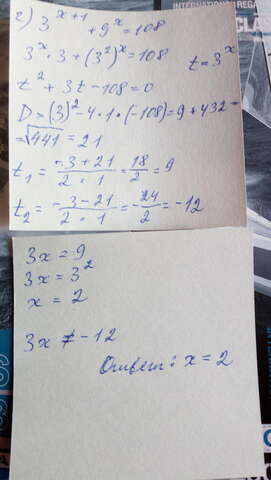 2) 3^(x+1) + 9^x = 108
3^x · 3 + (3^2)^x = 108
t = 3^x
t^2 + 3t - 108 = 0
D = (3)^2 - 4 · 1 · (-108) = 9 + 432 =
= √441 = 21
t₁ = (-3 + 21)/(2 · 1) = 18/2 = 9
t₂ = (-3 - 21)/(2 · 1) = -24/2 = -12
3x = 9
3x = 3^2
x = 2
3x ≠ -12
Ответ: x = 2